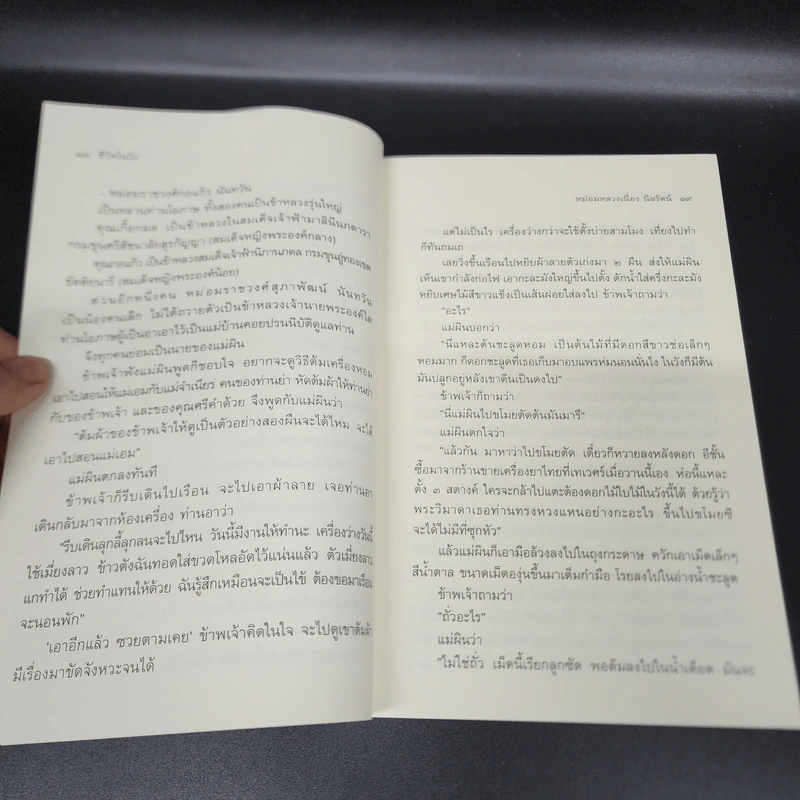 ๑๘ ชีวิตในวัง
- หม่อมราชวงศ์กอแก้ว นันทวัน
เป็นหลานท่านโอภาษ ทั้งสองคนเป็นข้าหลวงรุ่นใหญ่
คุณเกื้อกมล เป็นข้าหลวงในสมเด็จเจ้าฟ้ามาลินีนภดารา
กรมขุนศรีสัชนาลัยสุรกัญญา (สมเด็จหญิงพระองค์กลาง)
คุณกอแก้ว เป็นข้าหลวงสมเด็จเจ้าฟ้านิภานภดล กรมขุนอู่ทองเขต
ขัตติยนารี (สมเด็จหญิงพระองค์น้อย)
ส่วนอีกหนึ่งคน หม่อมราชวงศ์สุภาพัฒน์ นันทวัน
เป็นน้องคนเล็ก ไม่ได้ถวายตัวเป็นข้าหลวงเจ้านายพระองค์ใด
ท่านโอภาษผู้เป็นอาเอาไว้เป็นแม่บ้านคอยปรนนิบัติดูแลท่าน
จึงทุกคนย่อมเป็นนายของแม่ผิน
ข้าพเจ้าฟังแม่ผินพูดก็ชอบใจ อยากจะดูวิธีต้มเครื่องหอม
เอาไปสอนให้แม่เอมกับแม่จำเนียร คนของท่านย่า หัดต้มผ้าให้ท่านย่า
กับของข้าพเจ้า และของคุณศรีคำด้วย จึงพูดกับแม่ผินว่า
"ต้มผ้าของข้าพเจ้าให้ดูเป็นตัวอย่างสองผืนจะได้ไหม จะได้
เอาไปสอนแม่เอม"
แม่ผินตกลงทันที
ข้าพเจ้าก็รีบเดินไปเรือน จะไปเอาผ้าลาย เจอท่านอา
เดินกลับมาจากห้องเครื่อง ท่านอาว่า
"รีบเดินลุกลี้ลุกลนจะไปไหน วันนี้มีงานให้ทำนะ เครื่องว่างวันนี้
ใช้เมี่ยงลาว ข้าวตังฉันทอดใส่ขวดโหลอัดไว้แน่นแล้ว ตัวเมี่ยงลาว
แกทำได้ ช่วยทำแทนให้ด้วย ฉันรู้สึกเหมือนจะเป็นไข้ ต้องขอมาเรือน
จะนอนพัก"
'เอาอีกแล้ว ซวยตามเคย' ข้าพเจ้าคิดในใจ จะไปดูเขาต้มผ้า
มีเรื่องมาขัดจังหวะจนได้
หม่อมหลวงเนื่อง นิลรัตน์ ๑๙
แต่ไม่เป็นไร เครื่องว่างกว่าจะใช้ตั้งบ่ายสามโมง เที่ยงไปทำ
ก็ทันถมเถ
เลยวิ่งขึ้นเรือนไปหยิบผ้าลายตัวเก่งมา ๒ ผืน ส่งให้แม่ผิน
เห็นเขากำลังก่อไฟ เอากะละมังใหญ่ขึ้นไปตั้ง ตักน้ำใส่ครึ่งกะละมัง
หยิบเศษไม้สีขาวแข็งเป็นเส้นฝอยใส่ลงไป ข้าพเจ้าถามว่า
"อะไร"
แม่ผินบอกว่า
"นี่แหละต้นชะลูดหอม เป็นต้นไม้ที่มีดอกสีขาวช่อเล็กๆ
หอมมาก ก็ดอกชะลูดที่เธอเก็บมาอบแพรห่มนอนนั่นไง ในวังก็มีต้น
มันปลูกอยู่หลังเขาดินเป็นดงไป"
ข้าพเจ้าก็ถามว่า
"นี่แม่ผินไปขโมยตัดต้นมันมารึ"
แม่ผินตกใจว่า
"แล้วกัน มาหาว่าไปขโมยตัด เดี๋ยวก็หวายลงหลังดอก อีชั้น
ซื้อมาจากร้านขายเครื่องยาไทยที่เทเวศร์เมื่อวานนี้เอง ห่อนี้แหละ
ตั้ง ๓ สตางค์ ใครจะกล้าไปแตะต้องดอกไม้ใบไม้ในวังนี้ได้ ด้วยรู้ว่า
พระวิมาดาเธอท่านทรงหวงแหนอย่างกะอะไร ขืนไปขโมยซี
จะได้ไม่มีที่ซุกหัว"
แล้วแม่ผินก็เอามือล้วงลงไปในถุงกระดาษ ควักเอาเม็ดเล็กๆ
สีน้ำตาล ขนาดเม็ดองุ่นขึ้นมาเต็มกำมือ โรยลงไปในอ่างน้ำชะลูด
ข้าพเจ้าถามว่า
"ถั่วอะไร"
แม่ผินว่า
"ไม่ใช่ถั่ว เม็ดนี้เรียกลูกซัด พอต้มลงไปในน้ำเดือด มันจะ